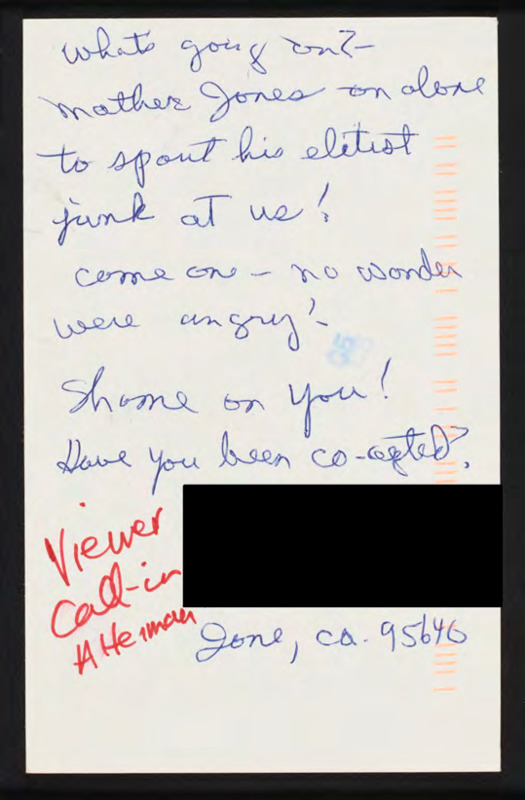 whats going on?-
mother Jones on alone
to spout his eletist
junk at us!
come one - no wonder
were angry!-
Shame on you!
Have you been co-opted?
Viewer
Call-in
Alterman
Ione, ca. 95640